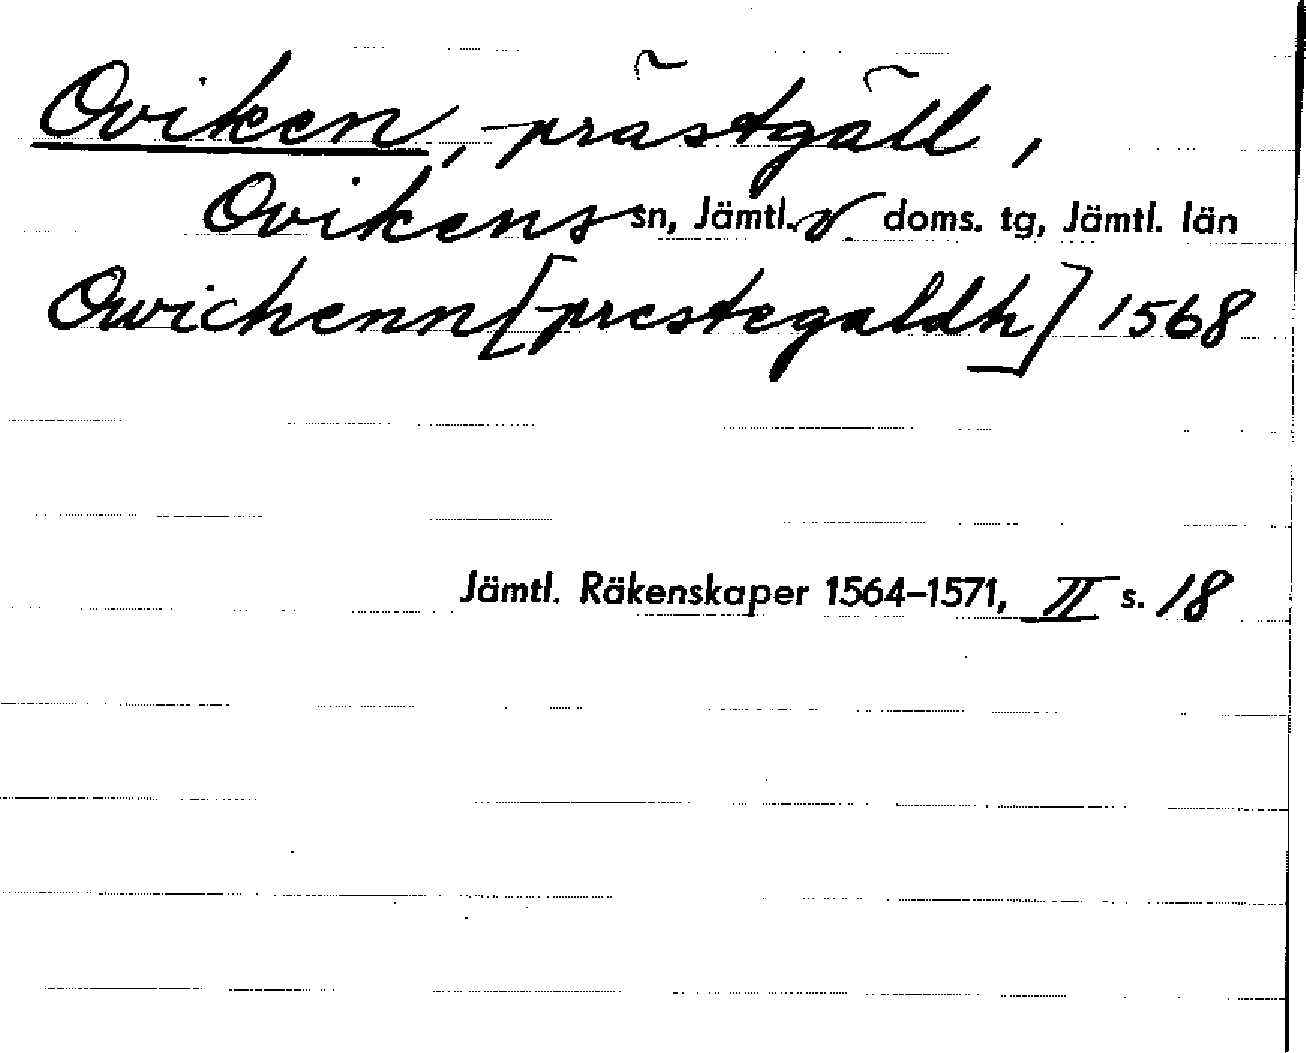 Oviken, prästgäll,
Ovikens sn, Jämtl. v. doms. tg, Jämtl. län
Owichenn [prestegaldh] 1568
Jämtl. Räkenskaper 1564–1571, II s. 18